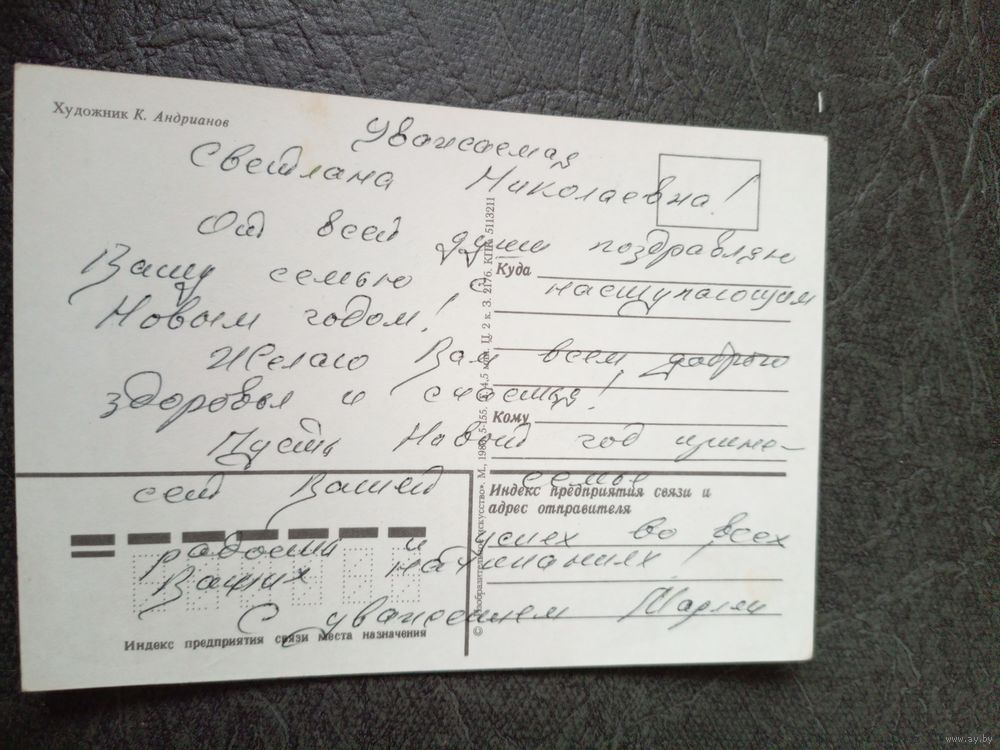 Художник К. Андрианов
Уважаемая
Светлана Николаевна!
От всей души поздравляю
Вашу семью с наступающим
Новым годом!
Желаю Вам всем доброго
здоровья и счастья!
Пусть Новый год прине-
сет Вашей семье
радости и успех во всех
Ваших начинаниях!
С уважением
Куда
Кому
Индекс предприятия связи и
адрес отправителя
Индекс предприятия связи места назначения
© «Изобразительное искусство». М., 5-155. 4,5 млн. Ц. 2 к. З. 2176. КПК 5113211
www.ay.by